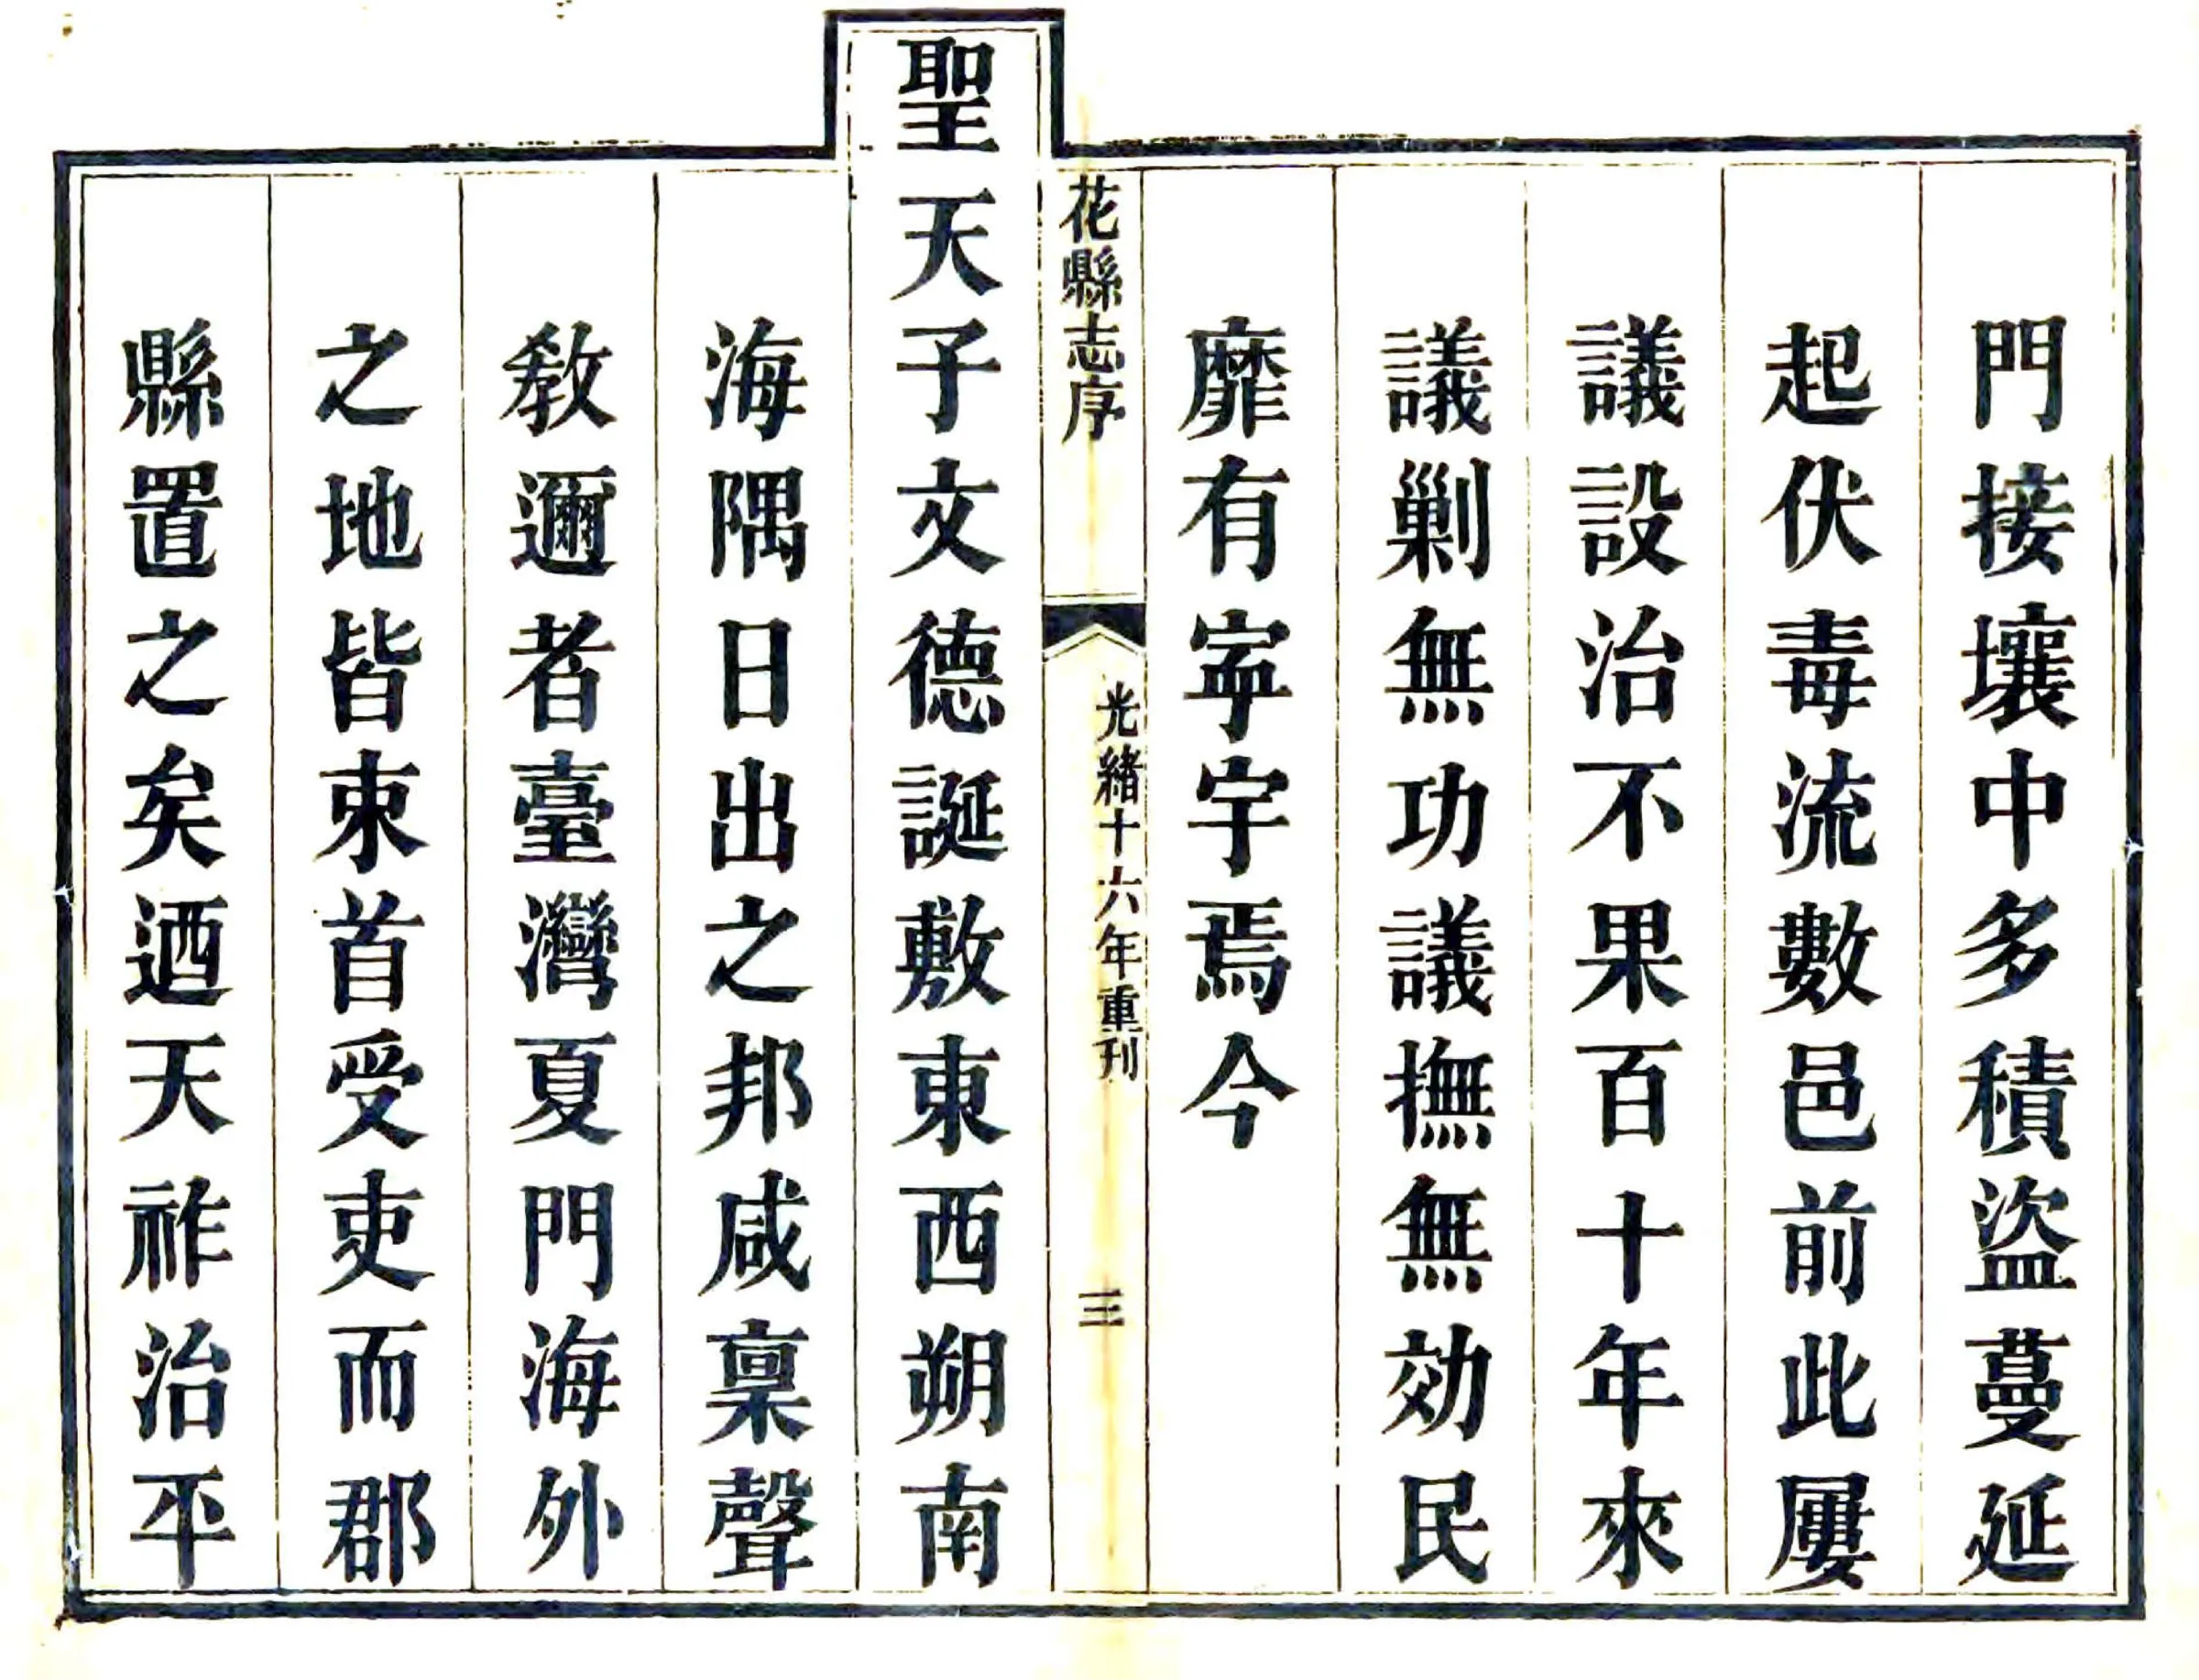 門接壤中多積盜蔓延
起伏毒流數邑前此屢
議設治不果百十年來
議剿無功議撫無効民
靡有寧宇焉今
花縣志序
光緒十六年重刊
三
聖天子文德誕敷東西朔南
海隅日出之邦咸稟聲
敎邇者臺灣夏門海外
之地皆束首受吏而郡
縣置之矣迺天祚治平